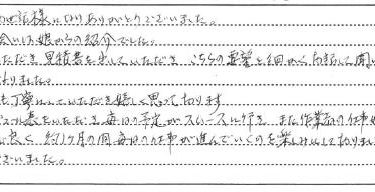 世話様になりありがとうございました。
会いは娘からの紹介でした。
ただき見積書を出していただき こちらの要望を細かく
なりました。
も丁寧にしていただき嬉しく思っております
表をいただき毎日の予定がスムーズに行き、また作業者の仕事
良く 約1ヶ月の間毎日の仕事が進んでいくのを楽しみにしておりまし
ざいました。